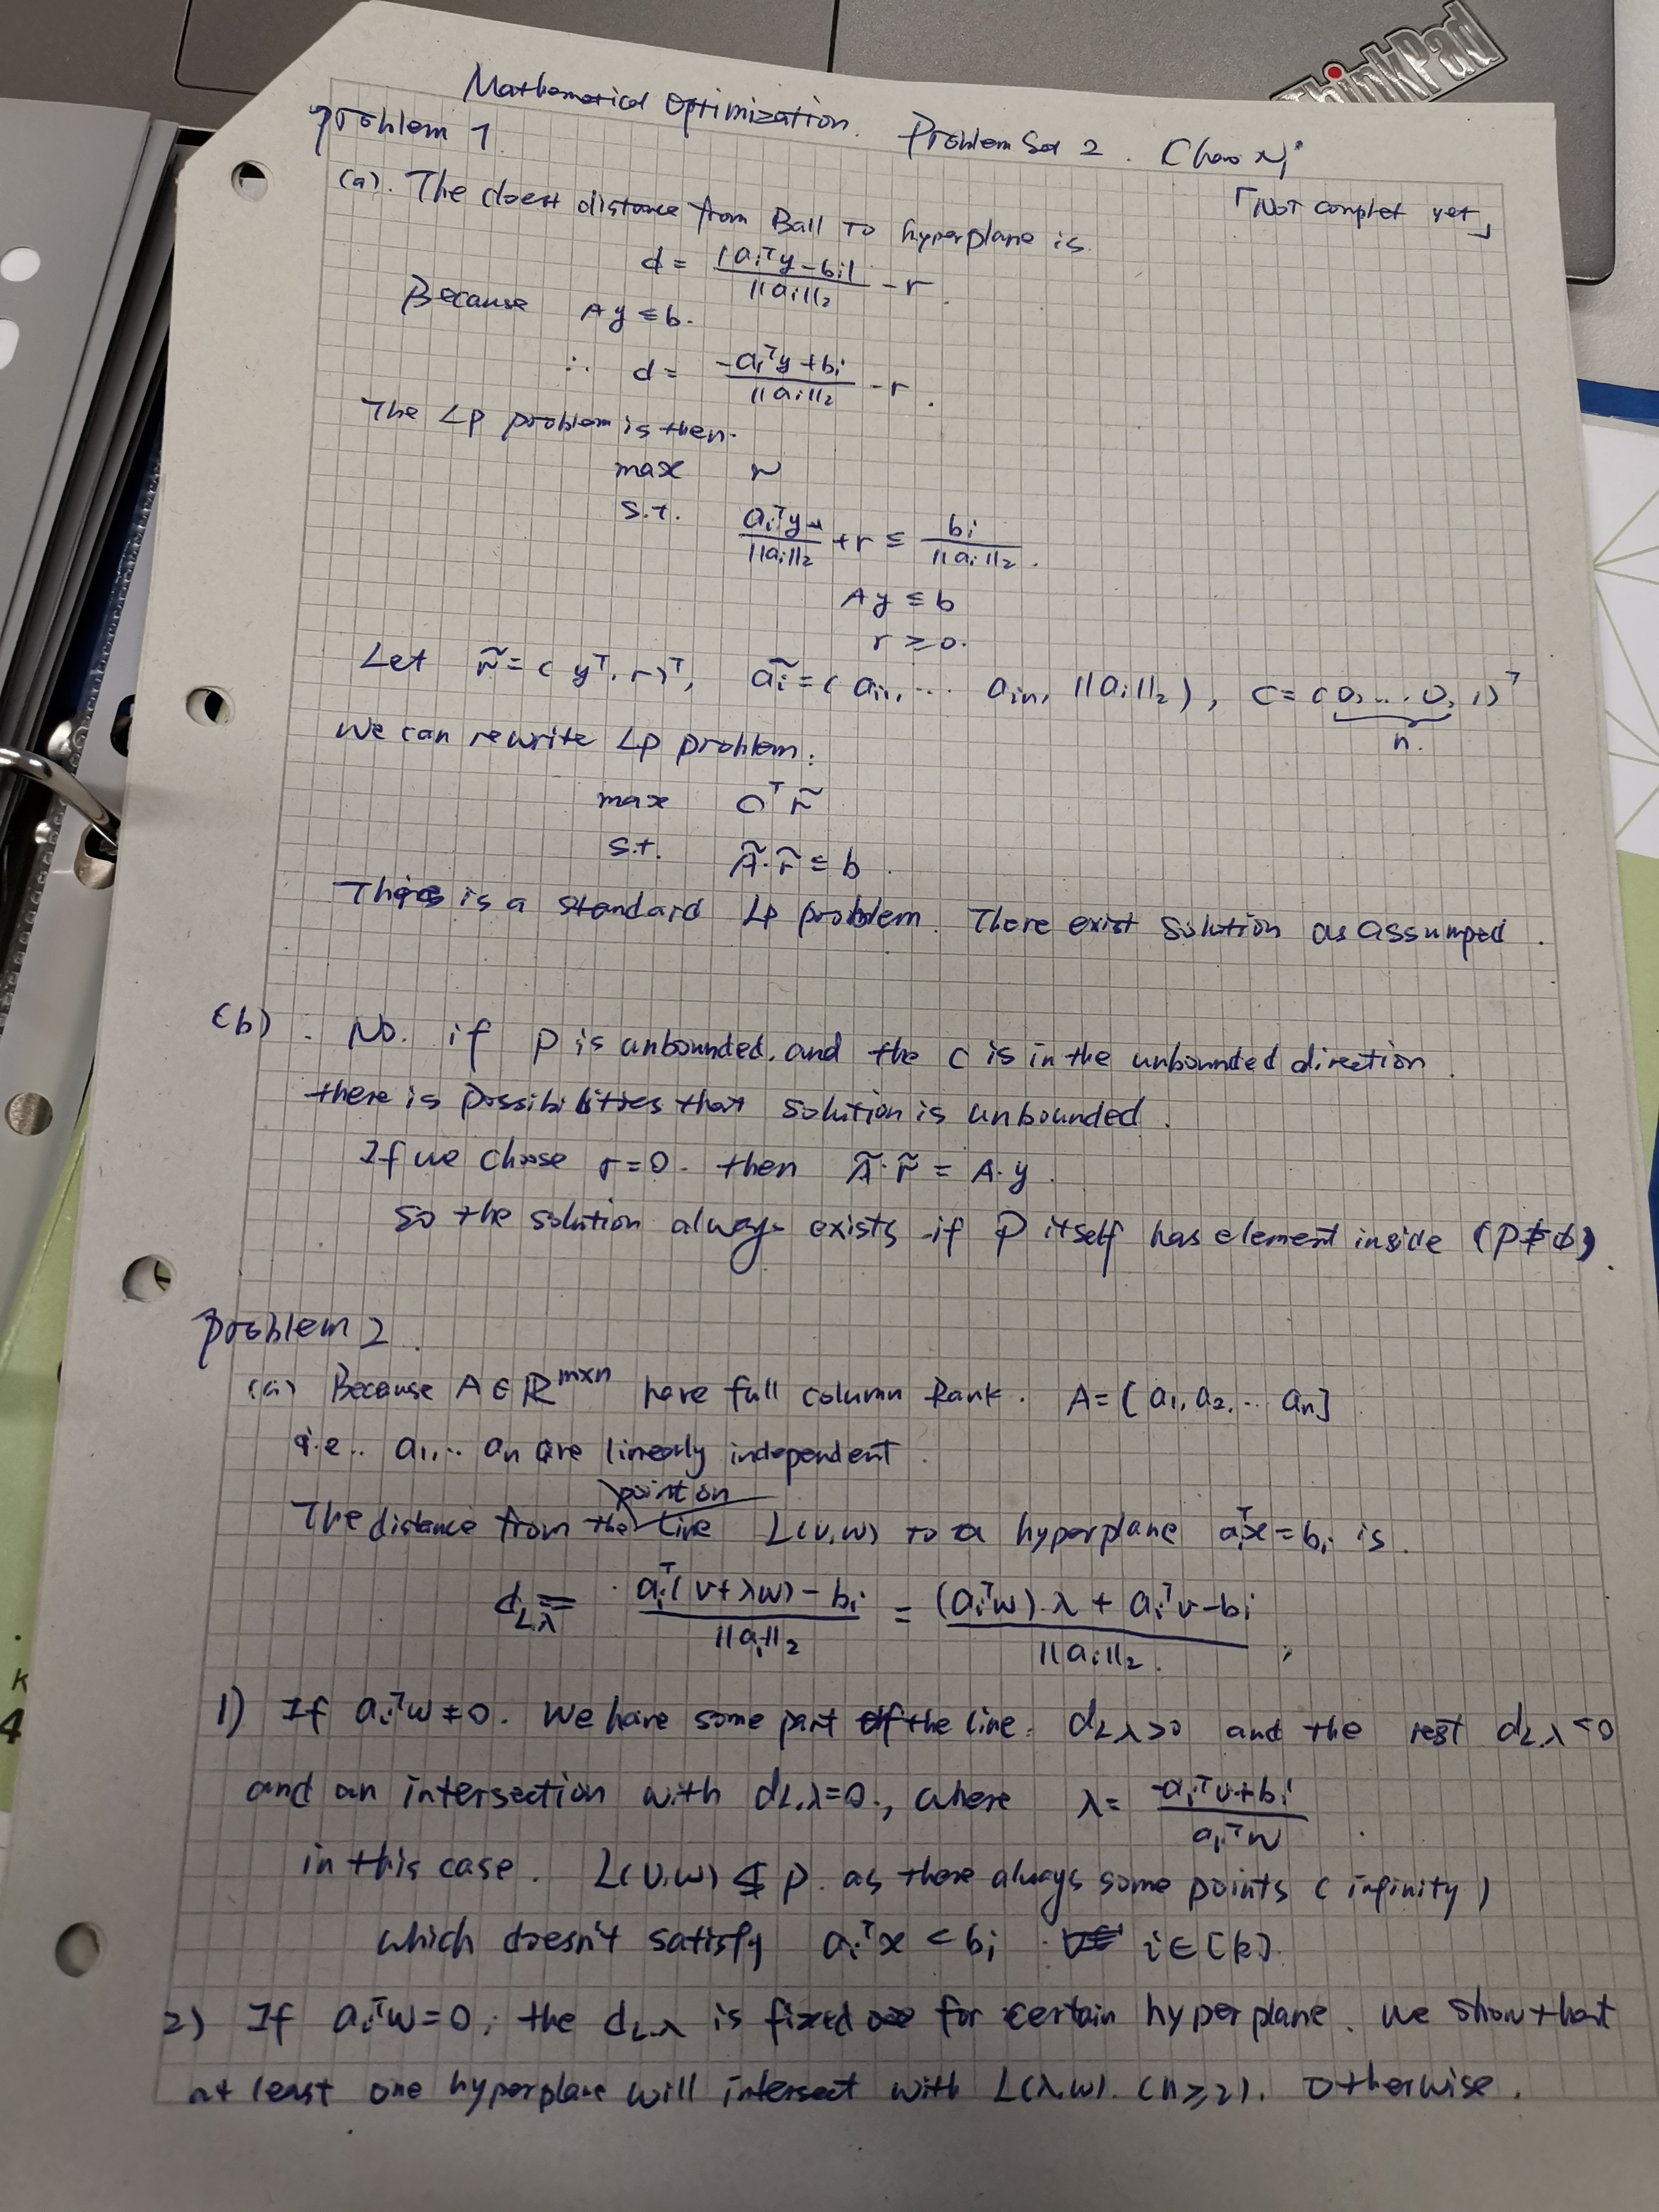 ThinkPad
Mathematical Optimization. Problem Set 2. Chao Ni
problem 1
「Not complet yet」
(a). The closest distance from Ball to hyperplane is.
d = |aᵢᵀy - bᵢ| / ||aᵢ||₂ - r.
Because Ay ≤ b.
∴ d = (-aᵢᵀy + bᵢ) / ||aᵢ||₂ - r.
The Lp problem is then.
max r
s.t. aᵢᵀy / ||aᵢ||₂ + r ≤ bᵢ / ||aᵢ||₂.
Ay ≤ b
r ≥ 0.
Let r̃ = (yᵀ, r)ᵀ, ãᵢ = (aᵢ₁, ... aᵢₙ, ||aᵢ||₂), c = (0, ... 0, 1)ᵀ
n.
We can rewrite Lp problem:
max cᵀ r̃
s.t. Ã·r̃ ≤ b.
This is a standard Lp problem. There exist solution as assumped.
(b). No. if P is unbounded. and the c is in the unbounded direction.
there is possibilities that solution is unbounded.
If we choose r=0. then Ã·r̃ = A·y.
so the solution always exists if P itself has element inside (P≠∅)
problem 2.
(a) Because A ∈ ℝᵐˣⁿ have full column Rank. A = [a₁, a₂, ... aₙ]
i.e.. a₁, .. aₙ are linearly independent.
point on
The distance from the line L(v,w) to a hyperplane aᵢᵀx = bᵢ is.
d_L,λ = (aᵢᵀ(v+λw) - bᵢ) / ||aᵢ||₂ = ((aᵢᵀw)·λ + aᵢᵀv - bᵢ) / ||aᵢ||₂.;
1) If aᵢᵀw ≠ 0. We have some part of the line. d_L,λ > 0 and the rest d_L,λ < 0
and an intersection with d_L,λ = 0., where λ = (-aᵢᵀv + bᵢ) / aᵢᵀw.
in this case. L(v,w) ⊈ P. as there always some points (infinity)
which doesn't satisfy aᵢᵀx < bᵢ i∈[k].
2) If aᵢᵀw = 0, the d_L,λ is fixed for certain hyperplane. We show that
at least one hyperplane will intersect with L(λ,w). (n≥2). Otherwise.
K
4